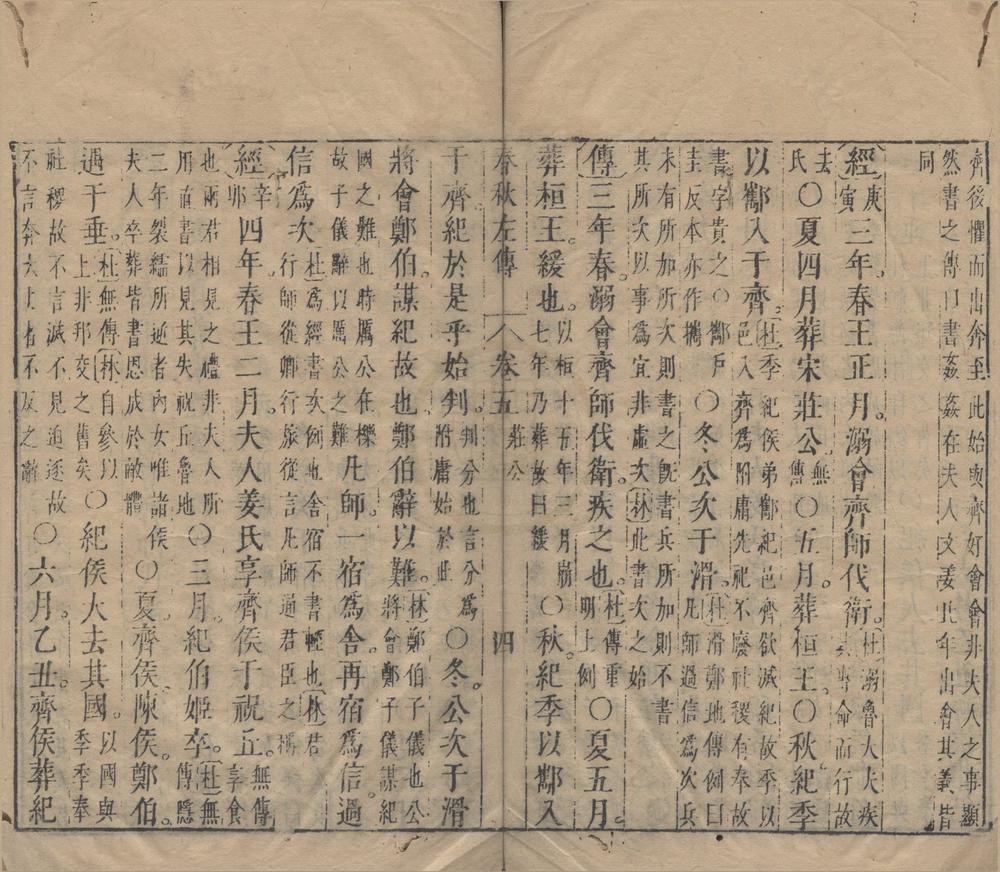 齊後懼而出奔至此始與齊好會會非夫人之事顯
然書之傳曰書姦姦在夫人文姜比年出會其義皆
同
經庚寅三年春王正月溺會齊師伐衛。杜溺魯大夫疾其專命而行故
去氏○夏四月葬宋莊公。無傳○五月。葬桓王。○秋紀季
以酅入于齊。杜季紀侯弟酅紀邑齊欲滅紀故季以邑入齊爲附庸先祀不廢社稷有奉故
書字貴之○酅戶圭反本亦作攜○冬公次于滑。杜滑鄭地傳例曰凡師過信爲次兵
未有所加所次則書之旣書兵所加則不書
其所次以事爲宜非虛次林此書次之始
傳三年春。溺會齊師伐衛。疾之也。杜傳重明上例○夏五月。
葬桓王。緩也。以桓十五年三月崩七年乃葬故曰緩○秋紀季以酅入
春秋左傳 卷五 莊公 四
于齊。紀於是乎始判。判分也言分爲附庸始於此○冬。公次于滑
將會鄭伯。謀紀故也鄭伯辭以難。林鄭伯子儀也公將會鄭子儀謀紀
國之難也時厲公在櫟故子儀辭以厲公之難凡師。一宿爲舍。再宿爲信。過
信爲次杜爲經書次例也舍宿不書輕也林君行師從卿行旅從言凡師通君臣之稱
經辛卯四年春王二月。夫人姜氏享齊侯于祝丘。無傳享食
也兩君相見之禮非夫人所用直書以見其失祝丘魯地○三月。紀伯姬卒。杜無傳隱
二年裂繻所逆者內女唯諸侯夫人卒葬皆書恩成於敵體○夏齊侯。陳侯。鄭伯。
遇于垂。杜無傳林自參以上非邦交之舊矣○紀侯大去其國。以國與季季奉
社稷故不言滅不見迫逐故不言奔大去者不反之辭○六月。乙丑。齊侯葬紀